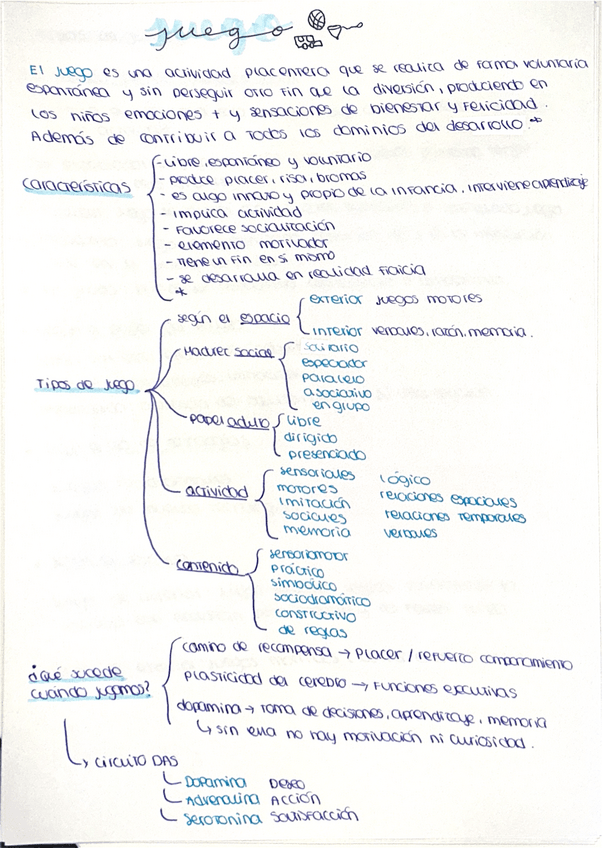 juego
El juego es una actividad placentera que se realiza de forma voluntaria
espontánea y sin perseguir otro fin que la diversión, produciendo en
los niños emociones + y sensaciones de bienestar y felicidad.
Además de contribuir a todos los dominios del desarrollo.*
características
- Libre, espontáneo y voluntario
- produce placer, risa, bromas
- es algo innato y propio de la infancia, interviene aprendizaje
- implica actividad
- Favorece socialización
- elemento motivador
- tiene un fin en si mismo
- se desarrolla en realidad ficticia
*
Tipos de juego
según el espacio
exterior juegos motores
interior verbales, razón, memoria.
Madurez social
solitario
espectador
paralelo
asociativo
en grupo
papel adulto
libre
dirigido
presenciado
actividad
sensoriales lógico
motores relaciones espaciales
imitación relaciones temporales
sociales verbales
memoria
contenido
sensoriomotor
práctico
simbólico
sociodramático
constructivo
de reglas
¿Qué sucede
cuándo jugamos?
camino de recompensa → placer / refuerzo comportamiento
plasticidad del cerebro → funciones ejecutivas
dopamina → toma de decisiones, aprendizaje, memoria
↳ sin ella no hay motivación ni curiosidad.
↳ circuito DAS
Dopamina Deseo
Adrenalina Acción
Serotonina Satisfacción